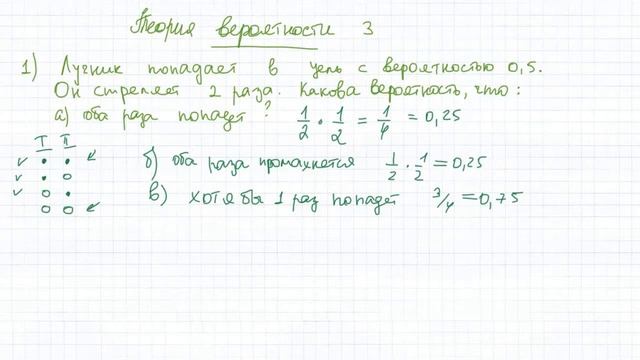 Теория вероятности 3
1) Лучник попадает в цель с вероятностью 0,5.
Он стреляет 2 раза. Какова вероятность, что:
а) оба раза попадет? 1/2 · 1/2 = 1/4 = 0,25
I II
б) оба раза промахнется 1/2 · 1/2 = 0,25
в) хотя бы 1 раз попадет 3/4 = 0,75